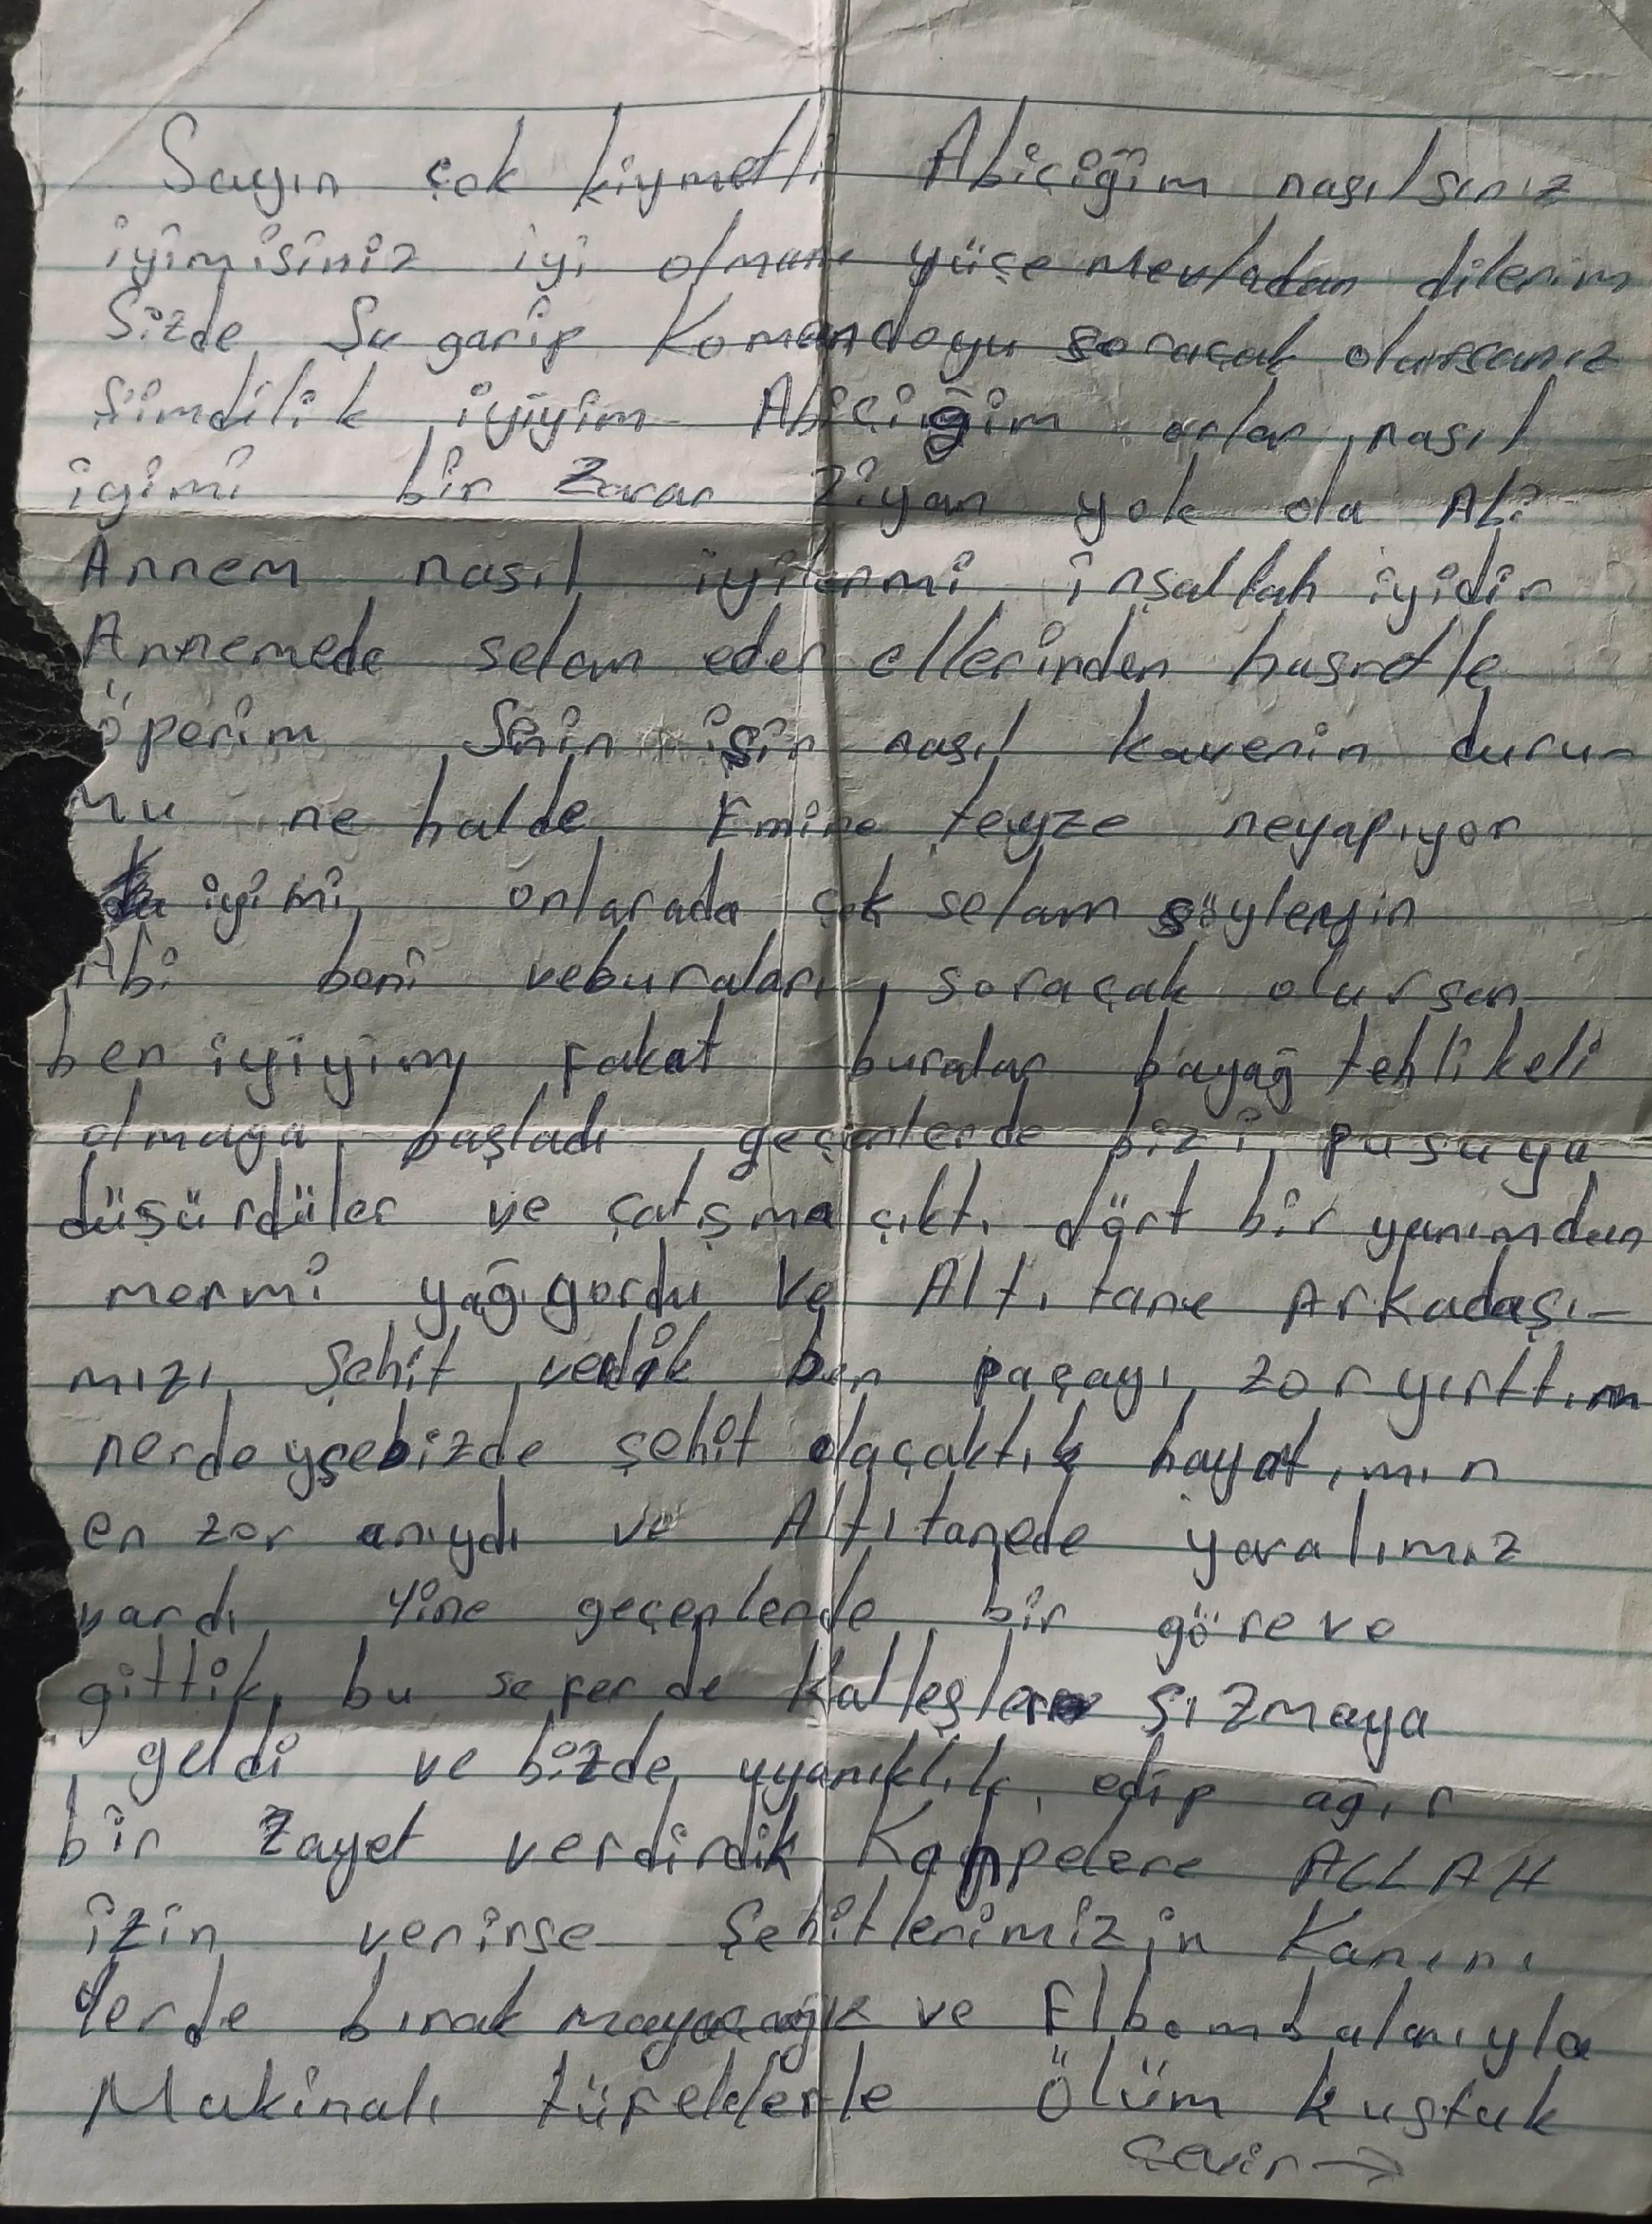 Sayın çok kiymetli Abiçiğim nasılsınız
iyimisiniz iyi olmanı yüçe mevladan dilerim
Sizde Şu garip Komandoyu soraçak olursanız
Şimdilik iyiyim Abiçiğim orlar nasıl
iyimi bir Zarar Ziyan yok ola Abi
Annem nasıl iyilermi inşallah iyidir
Annemede selam eder ellerinden hasretle
öperim Senin işin nasıl kaverin duru-
mu ne halde Emine teyze neyapıyor
iyimi onlarada çok selam söyleyin
Abi beni veburaları soraçak olursan
ben iyiyim fakat buralar bayağ tehlikeli
olmaya başladı geçenlerde bizi pusuya
düşürdüler ve çatışma çıktı dört bir yanımdan
mermi yağıyordu Ve Altı tane Arkadaşı-
mızı Şehit verdik ben paçayı zor yırttım
nerdeyşebizde şehit olaçaktık hayatımın
en zor anıydı ve Altıtanede yaralımız
vardı Yine geçenlerde bir göreve
gittik bu seferde Kalleşler Şızmaya
geldi ve bizde uyanıklık edip ağır
bir Zayet verdirdik Kahpelere ALLAH
izin verirse Şehitlerimizin Kanını
Yerde bırakmayaçağız ve Elbombalarıyla
Makinalı tüfeklerle Ölüm kustuk
Çevir →